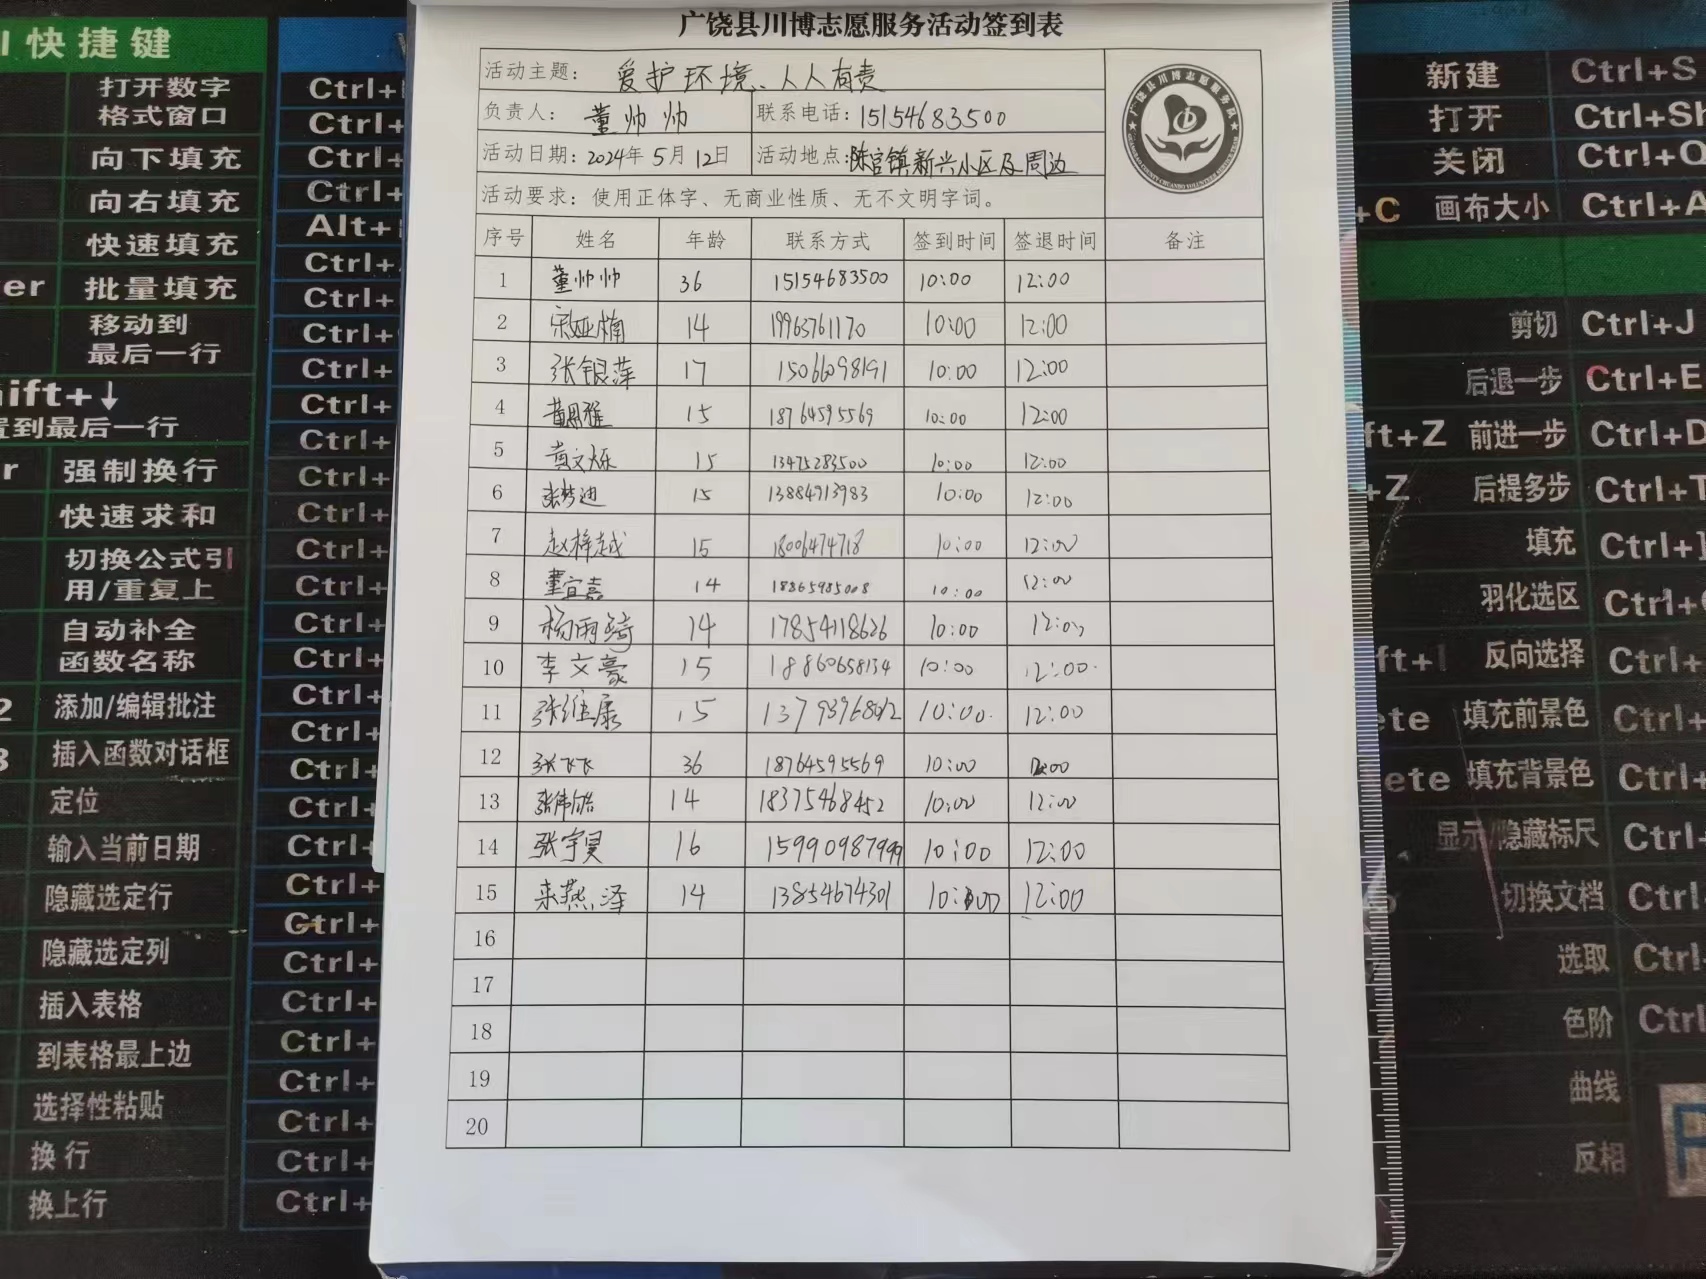 广饶县川博志愿服务活动签到表
活动主题： 爱护环境、人人有责
负责人： 董帅帅 联系电话：15154683500
活动日期：2024年5月12日 活动地点：陈官镇新兴小区及周边
活动要求：使用正体字、无商业性质、无不文明字词。
广饶县川博志愿服务队
序号 姓名 年龄 联系方式 签到时间 签退时间 备注
1 董帅帅 36 15154683500 10:00 12:00
2 宋亚楠 14 19963761170 10:00 12:00
3 张银萍 17 15066098191 10:00 12:00
4 15 18764595569 10:00 12:00
5 黄文烁 15 13475283500 10:00 12:00
6 张梦迪 15 13884913983 10:00 12:00
7 赵梓越 15 18006474718 10:00 12:00
8 董宜嘉 14 18865985008 10:00 12:00
9 杨雨琦 14 17854118626 10:00 12:00
10 李文豪 15 18860658134 10:00 12:00
11 张维康 15 10:00 12:00
12 张飞飞 36 18764595569 10:00 12:00
13 张伟皓 14 18375468452 10:00 12:00
14 张宇昊 16 15990987999 10:00 12:00
15 燕泽 14 13854674301 10:00 12:00
16
17
18
19
20
快捷键
打开数字
格式窗口
Ctrl+
向下填充 Ctrl+
向右填充 Ctrl+
快速填充 Alt+
批量填充 Ctrl+
移动到
最后一行
Ctrl+
ift+↓
置到最后一行 Ctrl+
强制换行 Ctrl+
快速求和 Ctrl+
切换公式引
用/重复上
Ctrl+
自动补全
函数名称
Ctrl+
添加/编辑批注 Ctrl+
插入函数对话框 Ctrl+
定位 Ctrl+
输入当前日期 Ctrl+
隐藏选定行 Ctrl+
隐藏选定列 Ctrl+
插入表格 Ctrl+
到表格最上边 Ctrl+
选择性粘贴 Ctrl+
换行 Ctrl+
换上行 Ctrl+
新建 Ctrl+S
打开 Ctrl+Sh
关闭 Ctrl+Q
+C 画布大小 Ctrl+A
剪切 Ctrl+J
后退一步 Ctrl+E
ft+Z 前进一步 Ctrl+D
+Z 后提多步 Ctrl+T
填充 Ctrl+
羽化选区 Ctrl+
ft+I 反向选择 Ctrl+
ete 填充前景色 Ctrl+
ete 填充背景色 Ctrl+
显示/隐藏标尺 Ctrl+
切换文档 Ctrl+
选取 Ctrl+
色阶 Ctrl
曲线
反相